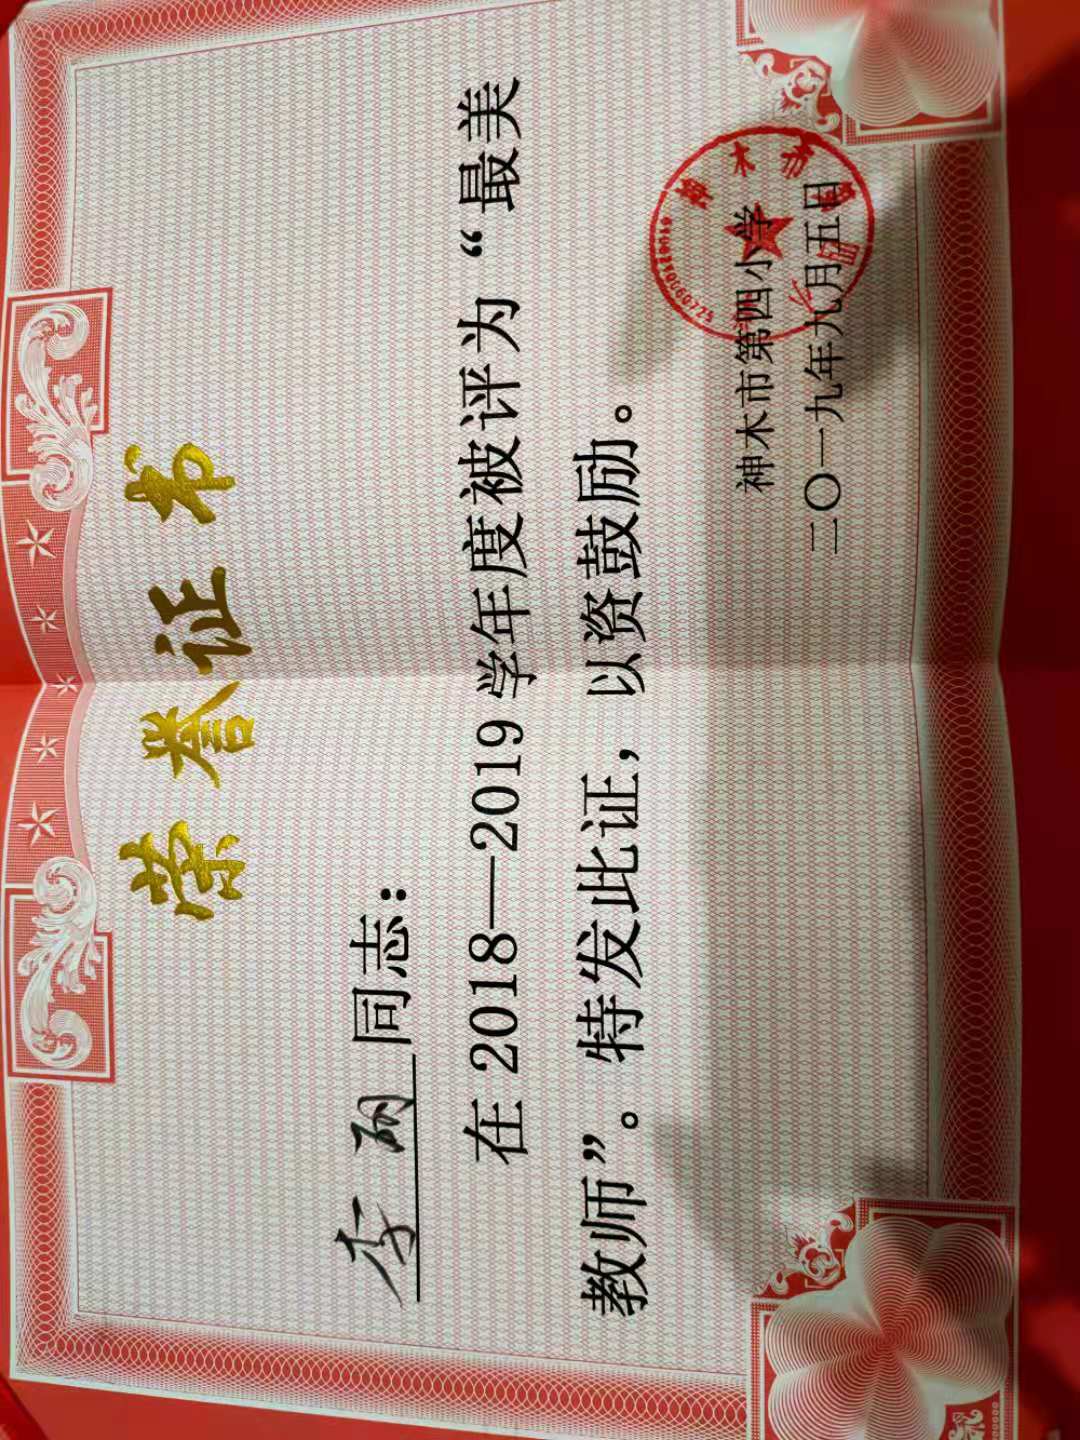 荣誉证书
李丽同志：
在2018—2019学年度被评为“最美
教师”。特发此证，以资鼓励。
神木市第四小学
二〇一九年九月五日